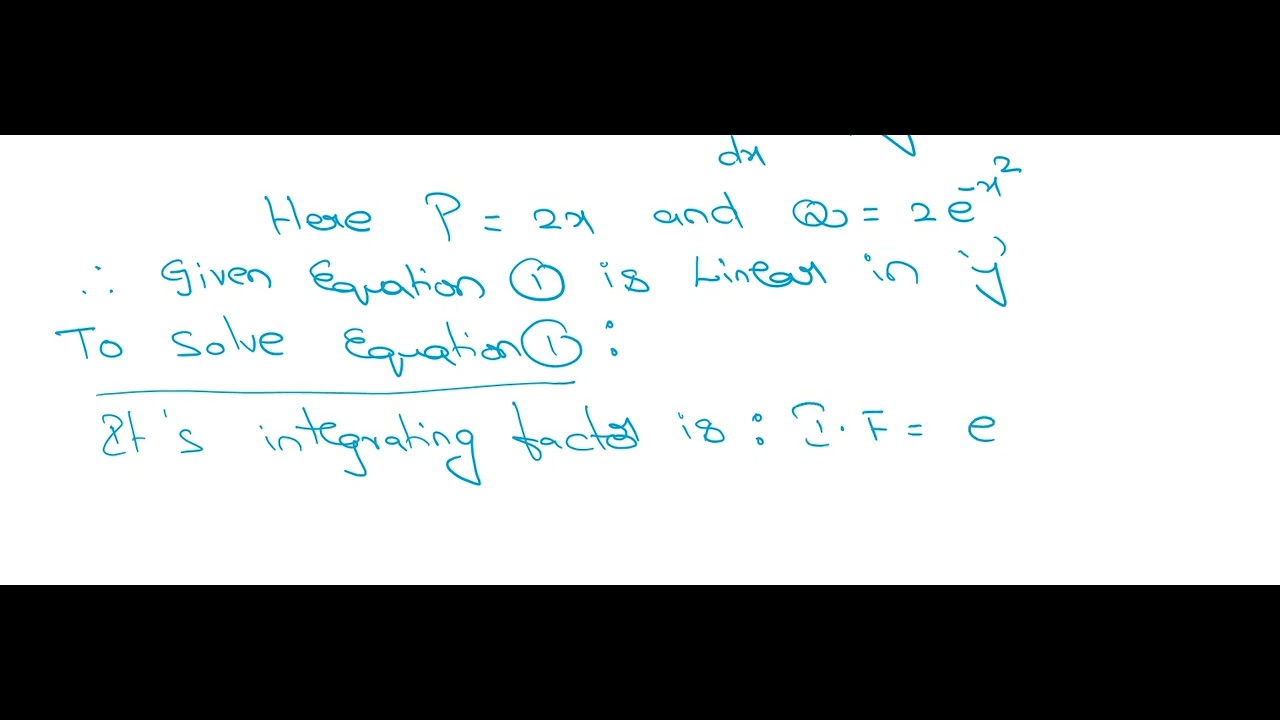 dx
Here P = 2x and Q = 2e^{-x^2}
∴ Given Equation ① is Linear in 'y'
To Solve Equation ① :
It's integrating factor is : I.F = e